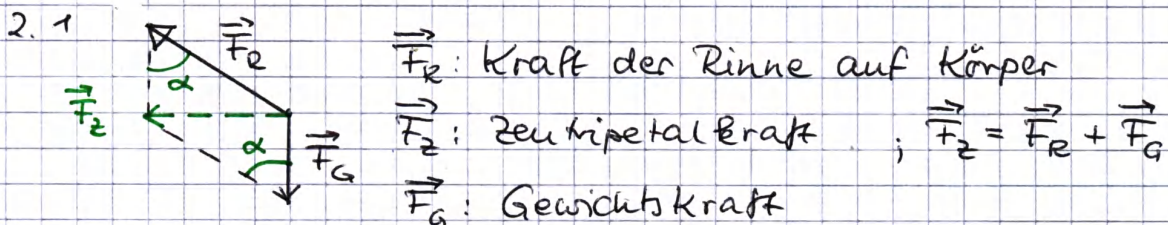 2.1
F⃗_R
α
F⃗_Z
α
F⃗_G
F⃗_R: Kraft der Rinne auf Körper
F⃗_Z: Zentripetalkraft ; F⃗_Z = F⃗_R + F⃗_G
F⃗_G: Gewichtskraft